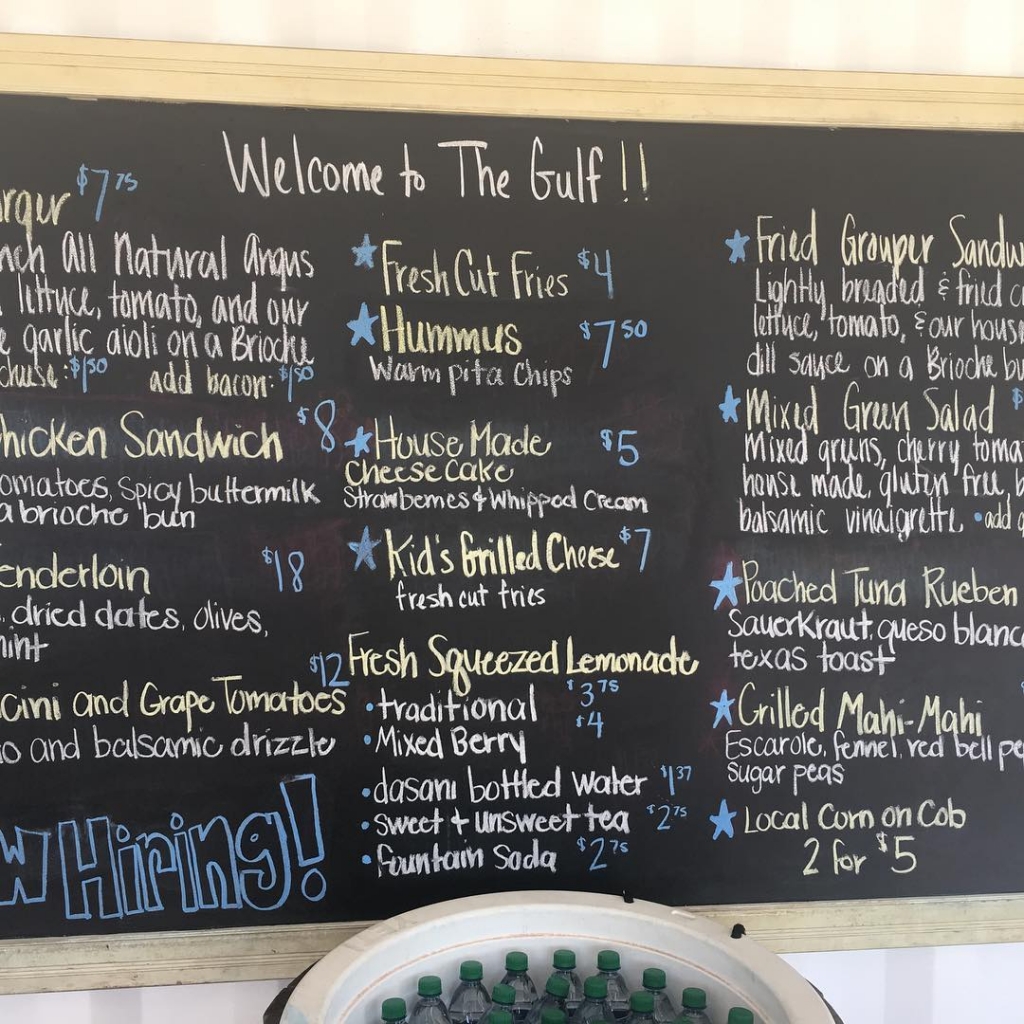 Welcome to The Gulf!!
$7.75
nch All Natural Angus
lettuce, tomato, and our
garlic aioli on a Brioche
$1.50 add bacon: $1.50
Chicken Sandwich $8
tomatoes, spicy buttermilk
a brioche bun
enderloin $18
dried dates, olives,
mint
$12
cini and Grape Tomatoes
io and balsamic drizzle
w Hiring!
Fresh Cut Fries $4
Hummus $7.50
Warm pita chips
House Made $5
Cheese Cake
Strawberries & Whipped Cream
Kid's Grilled Cheese $7
fresh cut fries
Fresh Squeezed Lemonade
• traditional $3.75
• Mixed Berry $4
• dasani bottled water $1.37
• sweet & unsweet tea $2.75
• fountain Soda $2.75
Fried Grouper Sandw
Lightly breaded & fried
lettuce, tomato, & our house
dill sauce on a Brioche bu
Mixed Green Salad $
Mixed greens, cherry toma
house made, gluten free, b
balsamic vinaigrette • add
Poached Tuna Rueben
Sauerkraut, queso blanc
texas toast
Grilled Mahi-Mahi
Escarole, fennel, red bell pe
sugar peas
Local Corn on Cob
2 for $5